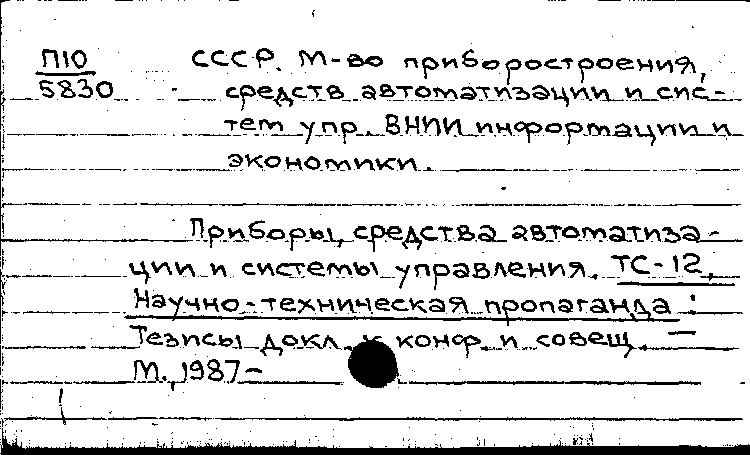 П10
5830
СССР. М-во приборостроения,
средств автоматизации и сис-
тем упр. ВНИИ информации и
экономики.
Приборы, средства автоматиза-
ции и системы управления. ТС-12,
Научно-техническая пропаганда:
Тезисы докл. к конф. и совещ. —
М., 1987-